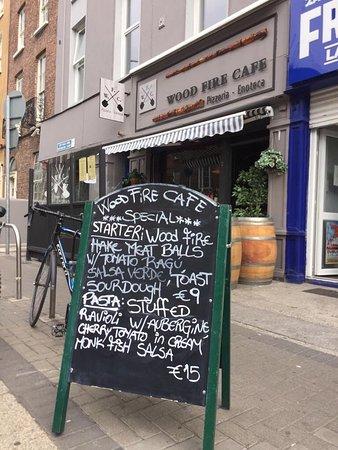 WOOD FIRE CAFE
Pizzeria - Enoteca
FR
LA
WOOD FIRE CAFE
***SPECIAL***
STARTER: WOOD FIRE
HAKE MEAT BALLS
W/ TOMATO RAGÚ
SALSA VERDE,
SOURDOUGH TOAST
€9
PASTA: STUFFED
RAVIOLI W/ AUBERGINE
CHERRY TOMATO IN CREAM
MONK FISH SALSA
€15